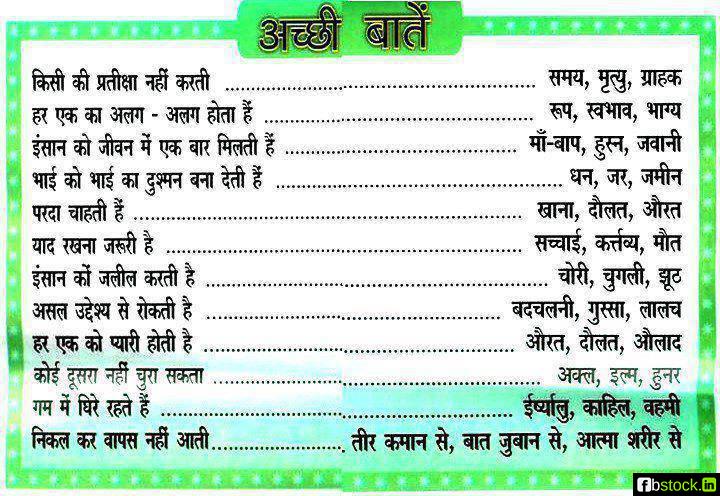 अच्छी बातें
किसी की प्रतीक्षा नहीं करती ........................ समय, मृत्यु, ग्राहक
हर एक का अलग - अलग होता हैं ........................ रूप, स्वभाव, भाग्य
इंसान को जीवन में एक बार मिलती हैं ........................ माँ-बाप, हुस्न, जवानी
भाई को भाई का दुश्मन बना देती हैं ........................ धन, जर, जमीन
परदा चाहती हैं ........................ खाना, दौलत, औरत
याद रखना जरूरी है ........................ सच्चाई, कर्त्तव्य, मौत
इंसान कों जलील करती है ........................ चोरी, चुगली, झूठ
असल उद्देश्य से रोकती है ........................ बदचलनी, गुस्सा, लालच
हर एक को प्यारी होती है ........................ औरत, दौलत, औलाद
कोई दूसरा नहीं चुरा सकता ........................ अक्ल, इल्म, हुनर
गम में घिरे रहते हैं ........................ ईर्ष्यालु, काहिल, वहमी
निकल कर वापस नहीं आती ........................ तीर कमान से, बात जुबान से, आत्मा शरीर से
fbstock.in